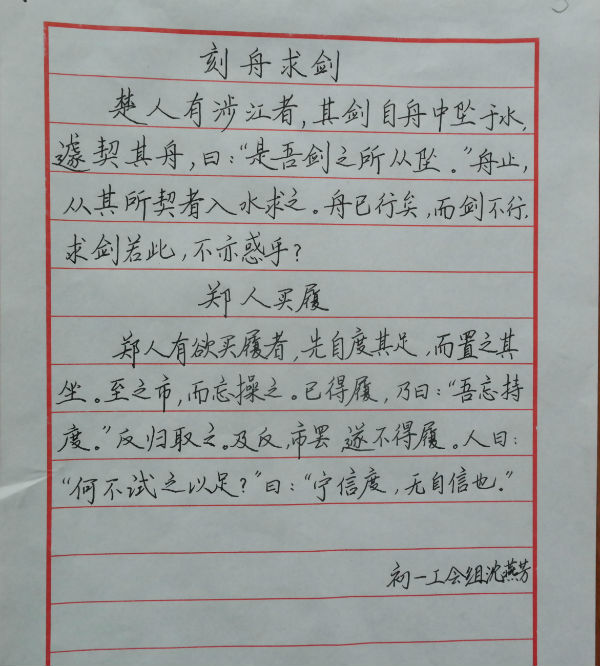 刻舟求剑
楚人有涉江者，其剑自舟中坠于水，
遽契其舟，曰：“是吾剑之所从坠。”舟止，
从其所契者入水求之。舟已行矣，而剑不行，
求剑若此，不亦惑乎？
郑人买履
郑人有欲买履者，先自度其足，而置之其
坐。至之市，而忘操之。已得履，乃曰：“吾忘持
度。”反归取之。及反，市罢 遂不得履。人曰：
“何不试之以足？”曰：“宁信度，无自信也。”
初一工会组沈燕芳